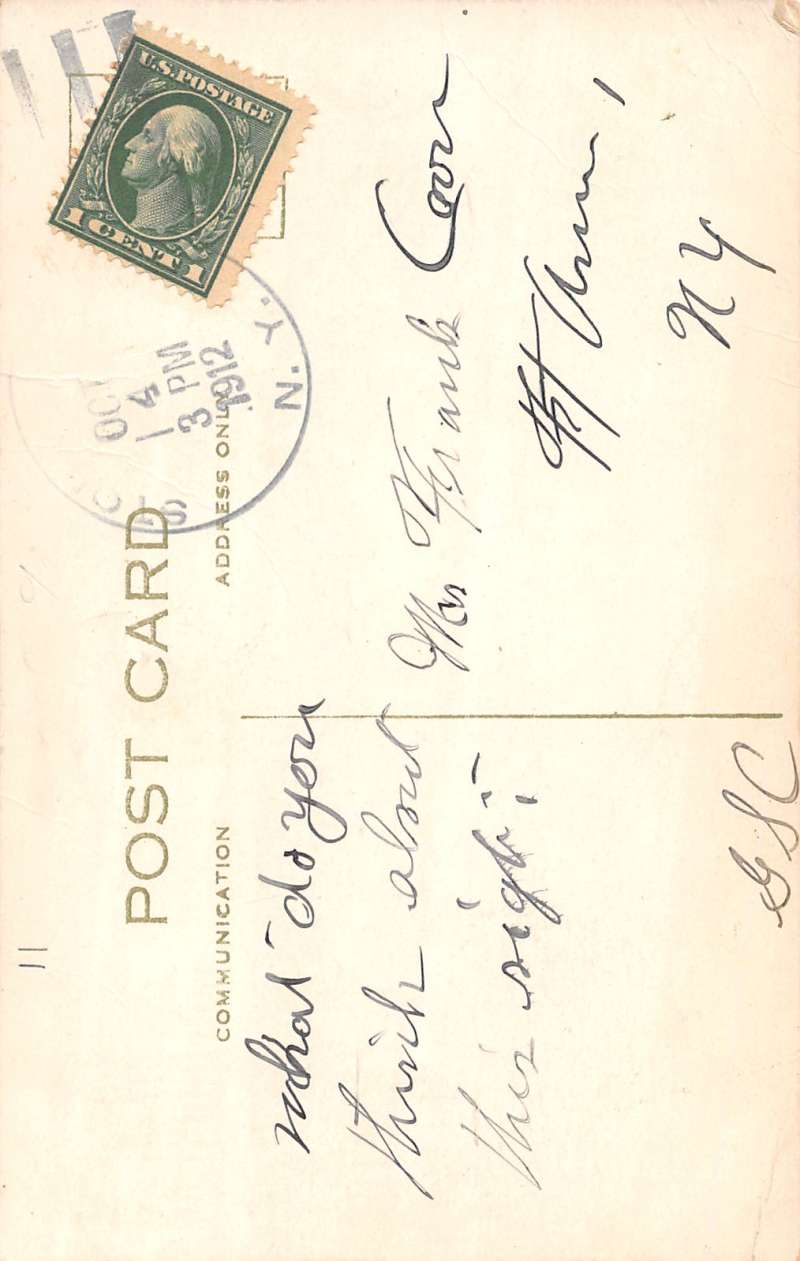 POST CARD
COMMUNICATION
ADDRESS ONLY
U.S. POSTAGE
1 CENT 1
OCT
14
3 PM
1912
N. Y.
what do you
think about
this sight?
G S C
Mr Frank Coon
Ft Ann,
N Y
11